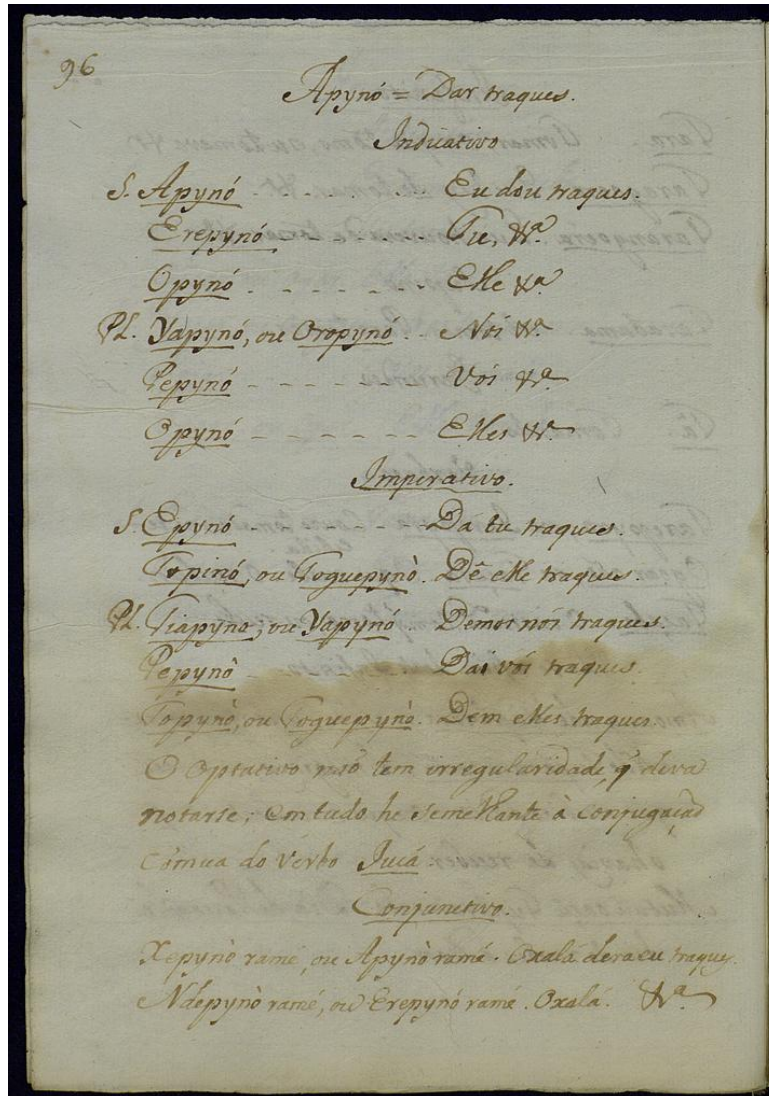 96
Apynó = Dar traques.
Indicativo
S. Apynó - - - - - - Eu dou traques.
Erepynó - - - - - - Tu, &a.
Opynó - - - - - - Elle &a.
Pl. Yapynó, ou Oropynó - - Nós &a.
Pepynó - - - - - - Vós &a.
Opynó - - - - - - Elles &a.
Imperativo.
S. Epynó - - - - - - Da tu traques.
Topinó, ou Toguepynò. Dê elle traques.
Pl. Tiapyno, ou Yapynó. Demos nós traques.
Pepynò - - - - - - Dai vós traques.
Topynò, ou Toguepynò. Dem elles traques.
O Optativo naõ tem irregularidade, q̃ deva
notarse; em tudo he semelhante à Conjugaçaõ
cõmua do verbo Jucá.
Conjunctivo.
Xepynò ramé, ou Apynò ramé. Oxalá dera eu traques.
Ndepynò ramé, ou Erepynó ramé. Oxalá. &a.